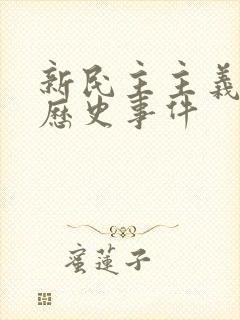 新民主主義
歷史事件
蜜蓮子